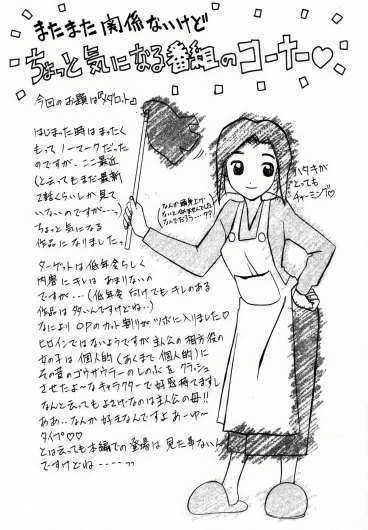 またまた関係ないけど
ちょっと気になる番組のコーナー♡
今回のお題は『メダロット』
はじまった時はまったく
もってノーマークだった
のですが、ここ最近
(と云ってもまだ最新
2話くらいしか見て
いないのですが…っ)
ちょっと気になる
作品になりましたっ。
ターゲットは低年令らしく
内容にキレは あまりないの
ですが…(低年令向けでもキレのある
作品は多いんですけどね…)
なにより OPのカット割りがツボに入りました♡
ヒロインではないようですが主人公の相方役の
女の子は 個人的(あくまで個人的)に
その昔のゴウザウラーのしのぶを クラッシュ
させたよ〜なキャラクターで好感持てますし
なんと云ってもよさげなのは主人公の母!!
ああ..なんか好きなんですよ あーゆ〜
タイプ♡♡
とは云っても本編での登場は 見た事ないん
ですけどね----っっ
ハタキが
とっても
チャーミング♡
(なんか頭身上げ
ないと似ませんでした
なんでだろう…??)